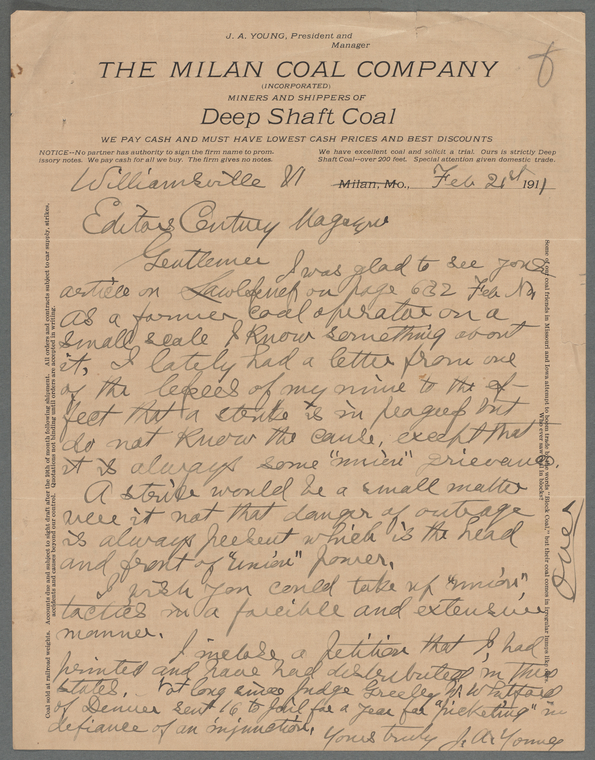 J. A. YOUNG, President and
Manager
THE MILAN COAL COMPANY
(INCORPORATED)
MINERS AND SHIPPERS OF
Deep Shaft Coal
WE PAY CASH AND MUST HAVE LOWEST CASH PRICES AND BEST DISCOUNTS
NOTICE--No partner has authority to sign the firm name to prom-
issory notes. We pay cash for all we buy. The firm gives no notes.
We have excellent coal and solicit a trial. Ours is strictly Deep
Shaft Coal--over 200 feet. Special attention given domestic trade.
Williamsville Vt Milan, Mo., Feb 21st 1911
Editors Century Magazine
Gentlemen I was glad to see your
article on on page 632 Feb No
As a former coal operator on a
small scale I know something about
it, I lately had a letter from one
of the lessees of my mine to the ef-
fect that a strike is in progress but
do not know the cause, except that
it is always some "union" grievance.
A strike would be a small matter
were it not that danger of outrage
is always present which is the head
and front of "union" power.
I wish you could take up "union"
tactics in a forcible and extensive
manner.
I inclose a petition that I had
printed and have had distributed in this
states. Not long since Judge Greeley W. Whitford
of Denver sent 16 to jail for a year for "picketing" in
defiance of an injunction.
Yours truly J. A. Young
Over
Coal sold at railroad weights. Accounts due and subject to sight draft after the 10th of month following shipment. All orders and contracts subject to car supply, strikes,
accidents and causes beyond our control. Quotations not binding until orders are accepted in writing.
Some of our coal friends in Missouri and Iowa attempt to boom trade by the words "Block Coal," but their coal comes in irregular lumps
Who ever saw coal in blocks?